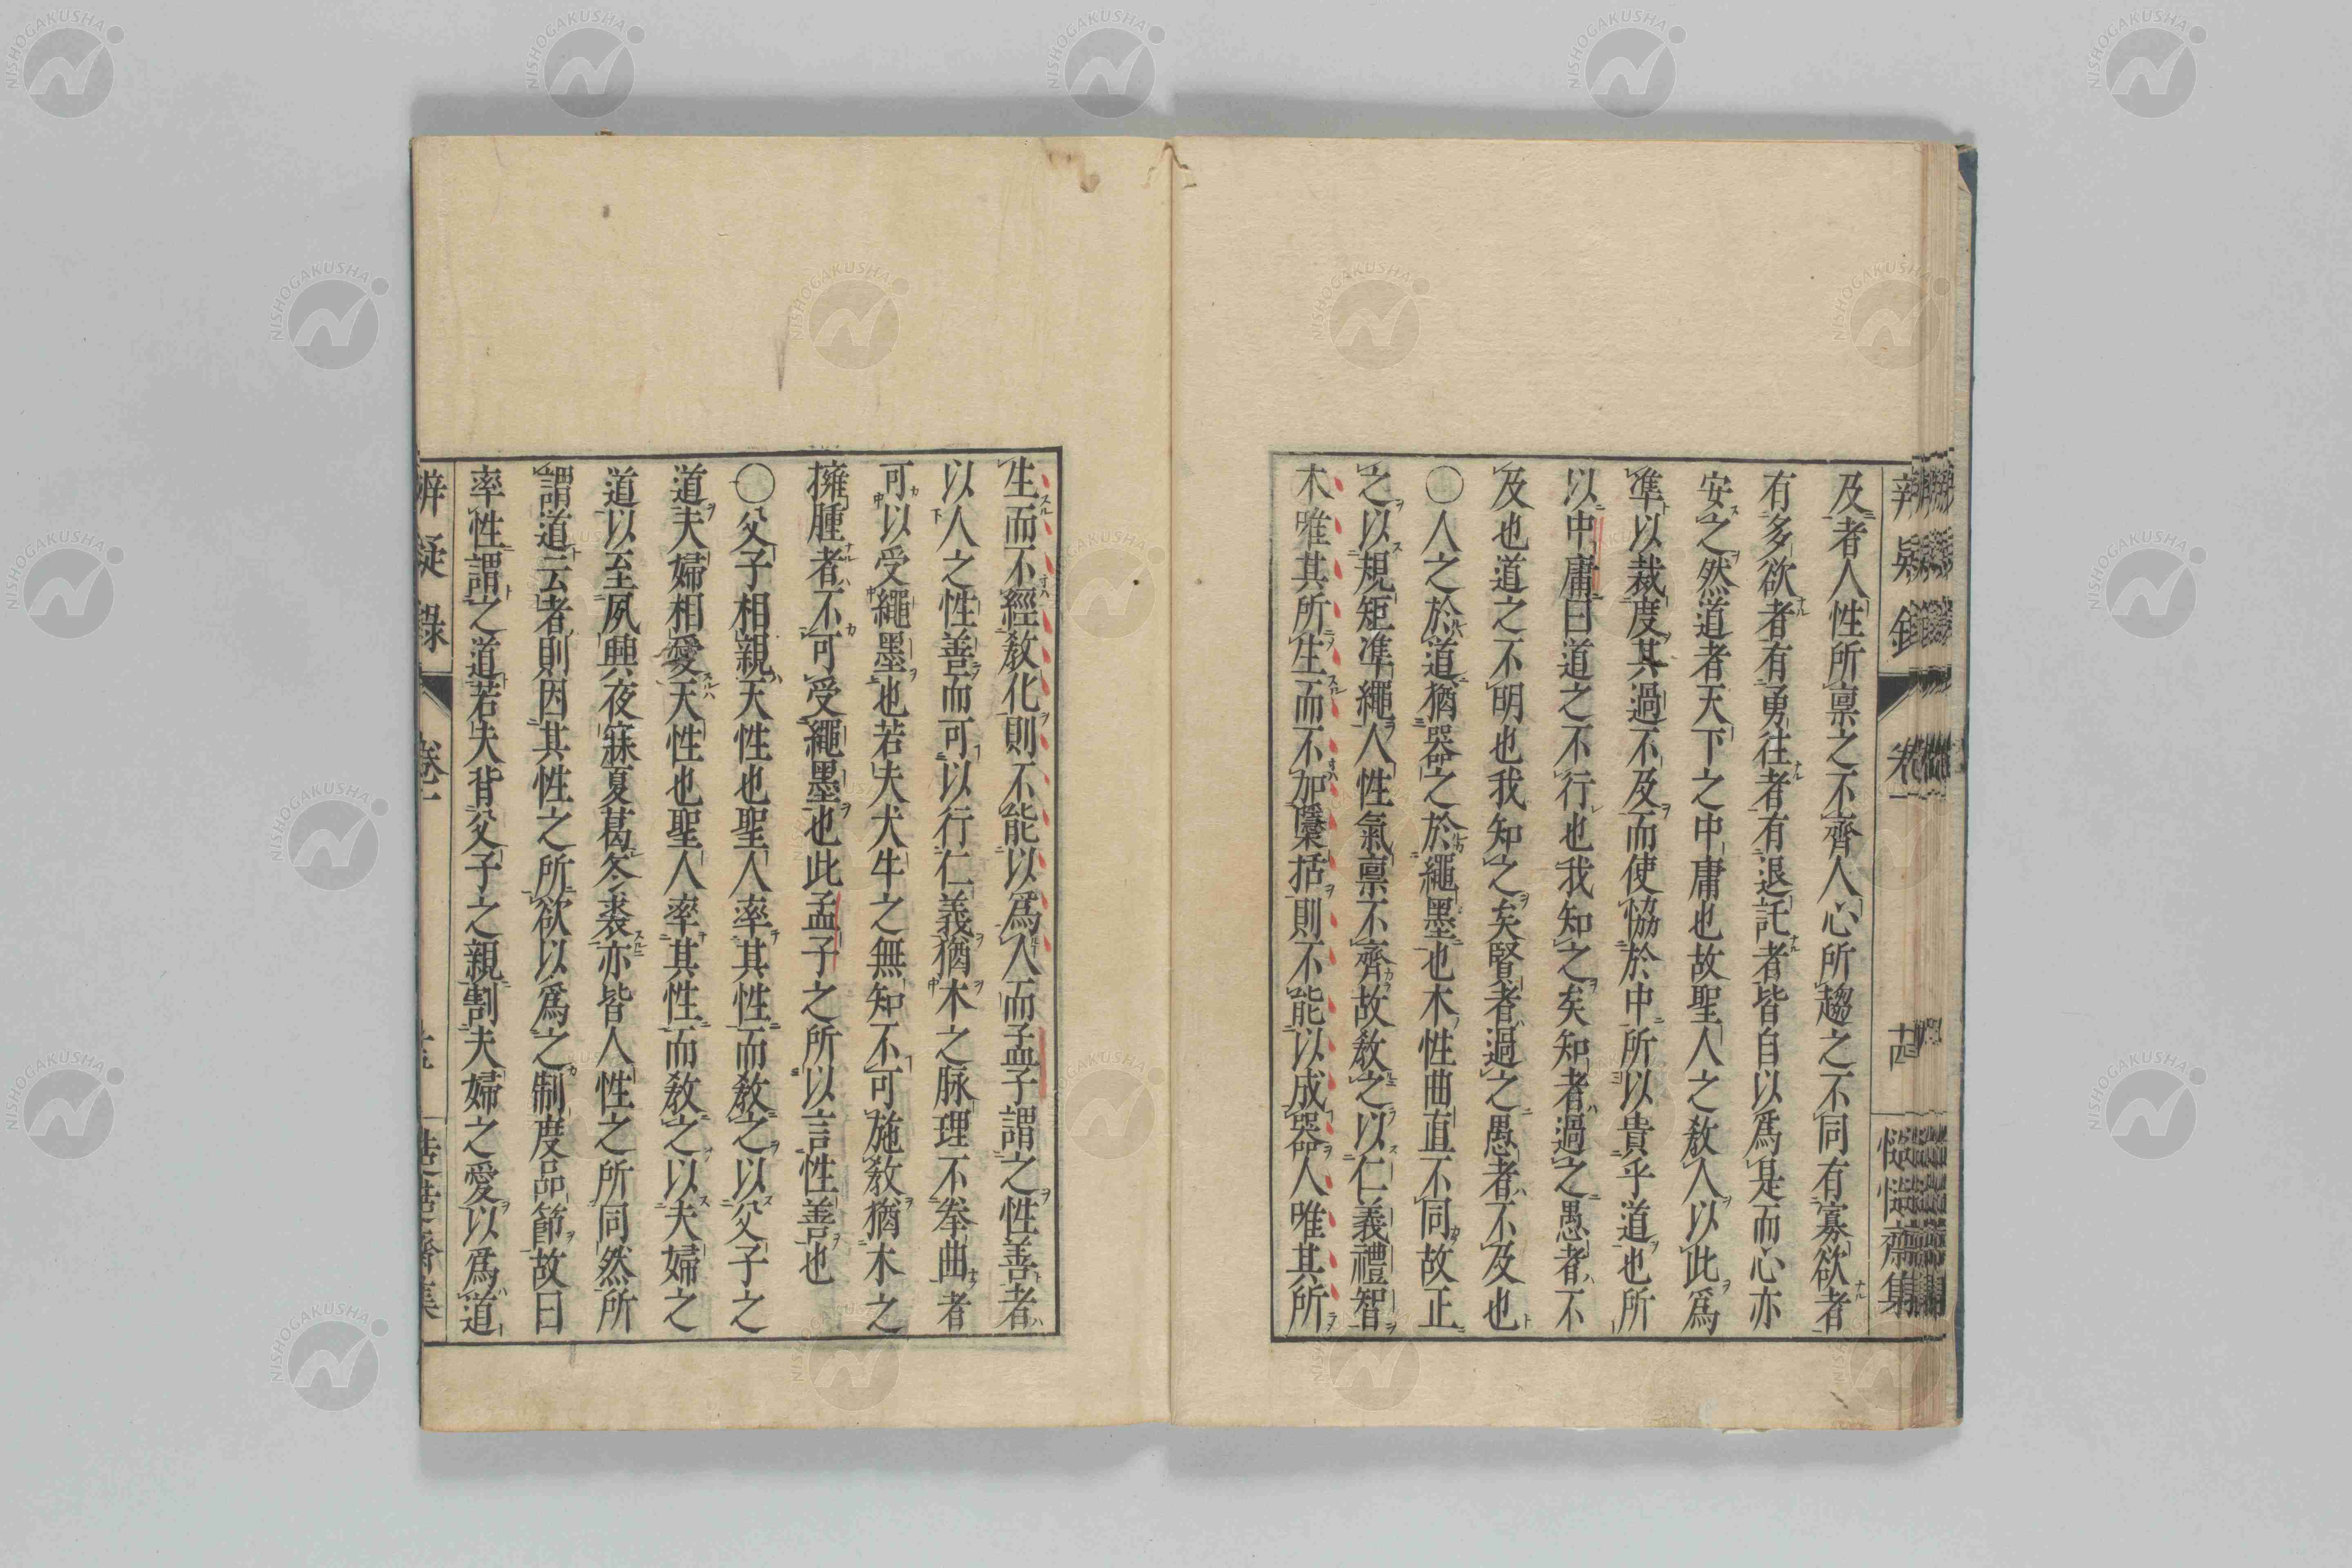 及者人性所稟之不齊人心所趨之不同有寡欲者
有多欲者有勇往者有退託者皆自以爲是而心亦
安之然道者天下之中庸也故聖人之敎人以此爲
準以裁度其過不及而使協於中所以貴乎道也所
以中庸曰道之不行也我知之矣知者過之愚者不
及也道之不明也我知之矣賢者過之愚者不及也
〇人之於道猶器之於繩墨也木性曲直不同故正
之以規矩準繩人性氣稟不齊故敎之以仁義禮智
木唯其所生而不加檃括則不能以成器人唯其所
生而不經敎化則不能以爲人而孟子謂之性善者
以人之性善而可以行仁義猶木之脉理不拳曲者
可以受繩墨也若夫犬牛之無知不可施敎猶木之
擁腫者不可受繩墨也此孟子之所以言性善也
〇父子相親天性也聖人率其性而敎之以父子之
道夫婦相愛天性也聖人率其性而敎之以夫婦之
道以至夙興夜寐夏葛冬裘亦皆人性之所同然所
謂道云者則因其性之所欲以爲之制度品節故曰
率性謂之道若夫背父子之親割夫婦之愛以爲道
辨疑錄 卷一 十四 慥慥齋集
NISHOGAKUSHA